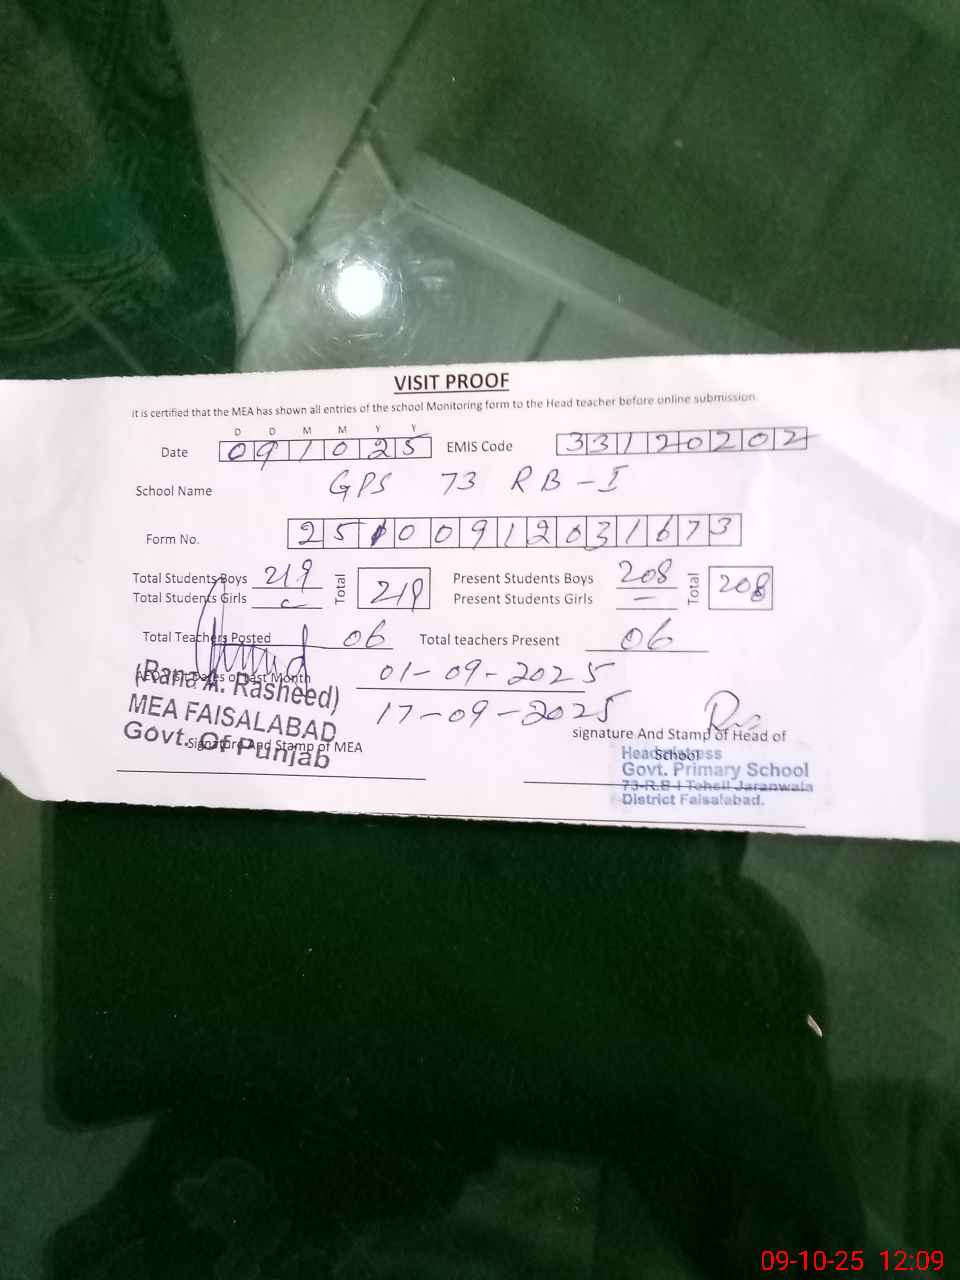 VISIT PROOF
It is certified that the MEA has shown all entries of the school Monitoring form to the Head teacher before online submission.
D D M M Y Y
Date 091025 EMIS Code 33120202
School Name GPS 73 RB-I
Form No. 2510091203 1673
Total Students Boys 219 Total 219 Present Students Boys 208 Total 208
Total Students Girls Present Students Girls —
Total Teachers Posted 06 Total teachers Present 06
AEO Visit Dates of Last Month 01-09-2025
17-09-2025
(Rana A. Rasheed)
MEA FAISALABAD
Govt. Of Punjab
Signature And Stamp of MEA
signature And Stamp of Head of
School
Headmistress
Govt. Primary School
73-R.B-I Tehsil Jaranwala
District Faisalabad.
09-10-25 12:09